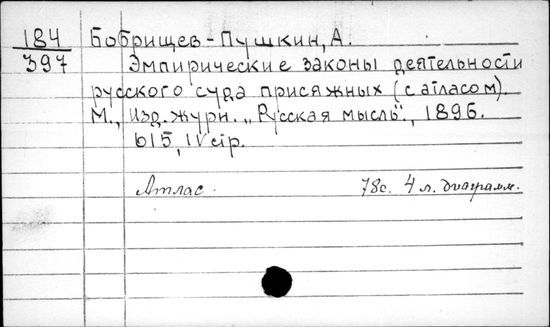 184
397
Бобрищев-Пушкин, А.
Эмпирические законы деятельности
русского суда присяжных (с атласом).
М., Изд. журн. „Русская мысль", 1896.
615, IV стр.
Атлас. 78с. 4 л. диаграмм.